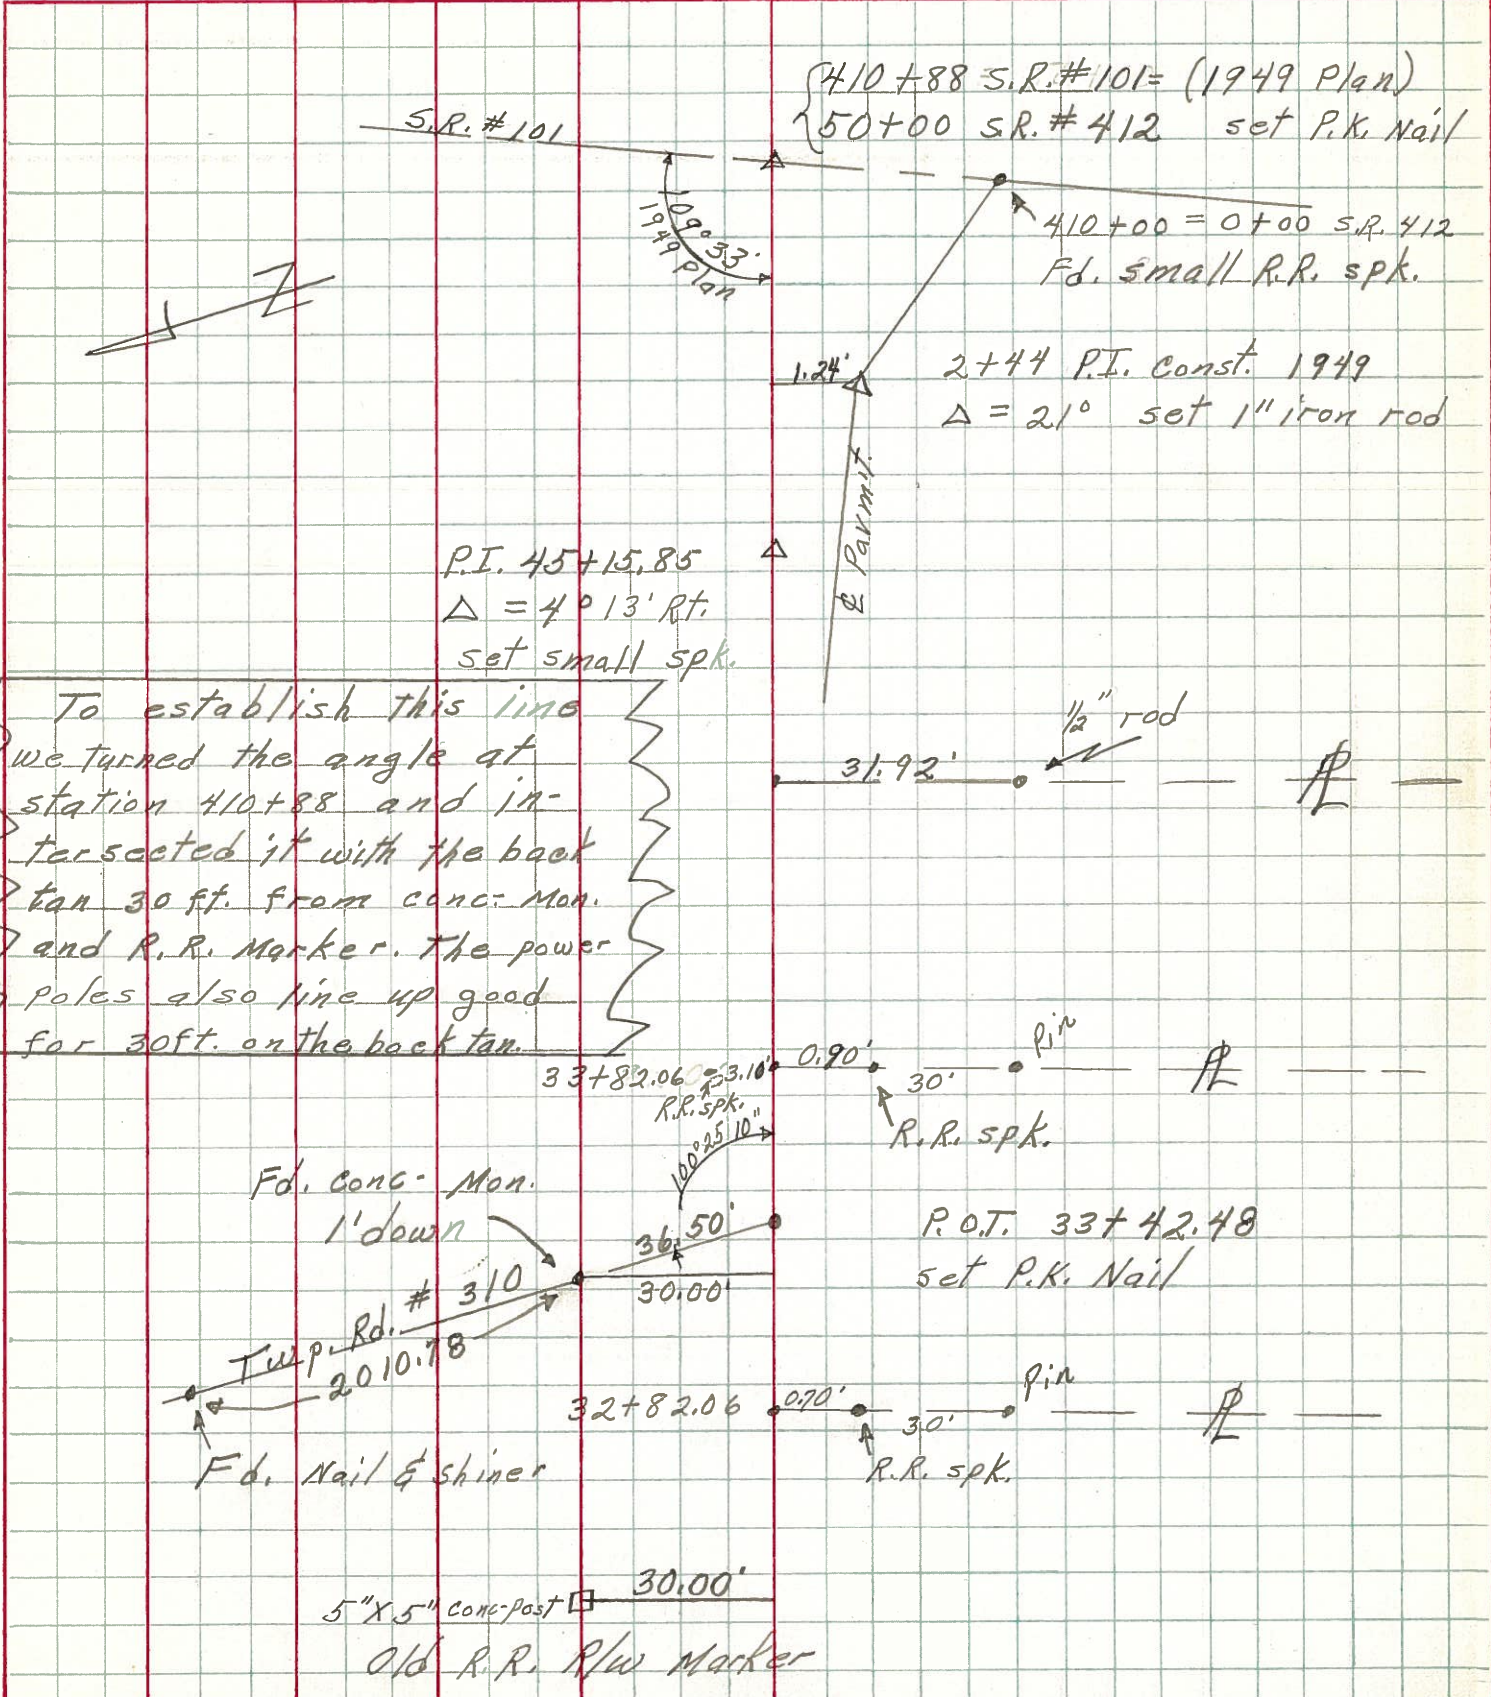 410+88 S.R.#101= (1949 Plan)
50+00 S.R.#412 set P.K. Nail
S.R. #101
109°33'
1949 Plan
410+00 = 0+00 S.R. 412
Fd. small R.R. spk.
N
1.24'
2+44 P.I. Const. 1949
Δ = 21° set 1" iron rod
℄ Pavmnt.
P.I. 45+15.85
Δ = 4°13' Rt.
set small spk.
To establish this line
we turned the angle at
station 410+88 and in-
tersected it with the back
tan 30 ft. from conc- Mon.
and R.R. Marker. The power
poles also line up good
for 30ft. on the back tan.
1/2" rod
31.92'
PL
33+82.06
3.10'
R.R. spk.
0.90'
30'
Pin
PL
R.R. spk.
100°25'10"
Fd. Conc- Mon.
1' down
36.50'
30.00'
P.O.T. 33+42.48
set P.K. Nail
Twp. Rd. # 310
2010.78
Fd. Nail & shiner
32+82.06
0.70'
30'
Pin
PL
R.R. spk.
30.00'
5"X5" conc-post
Old R.R. R/W Marker